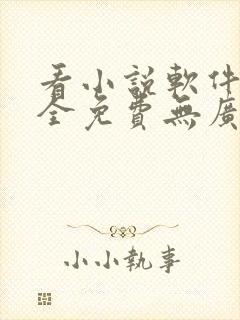 看小説軟件
全免費無廣
小小執事